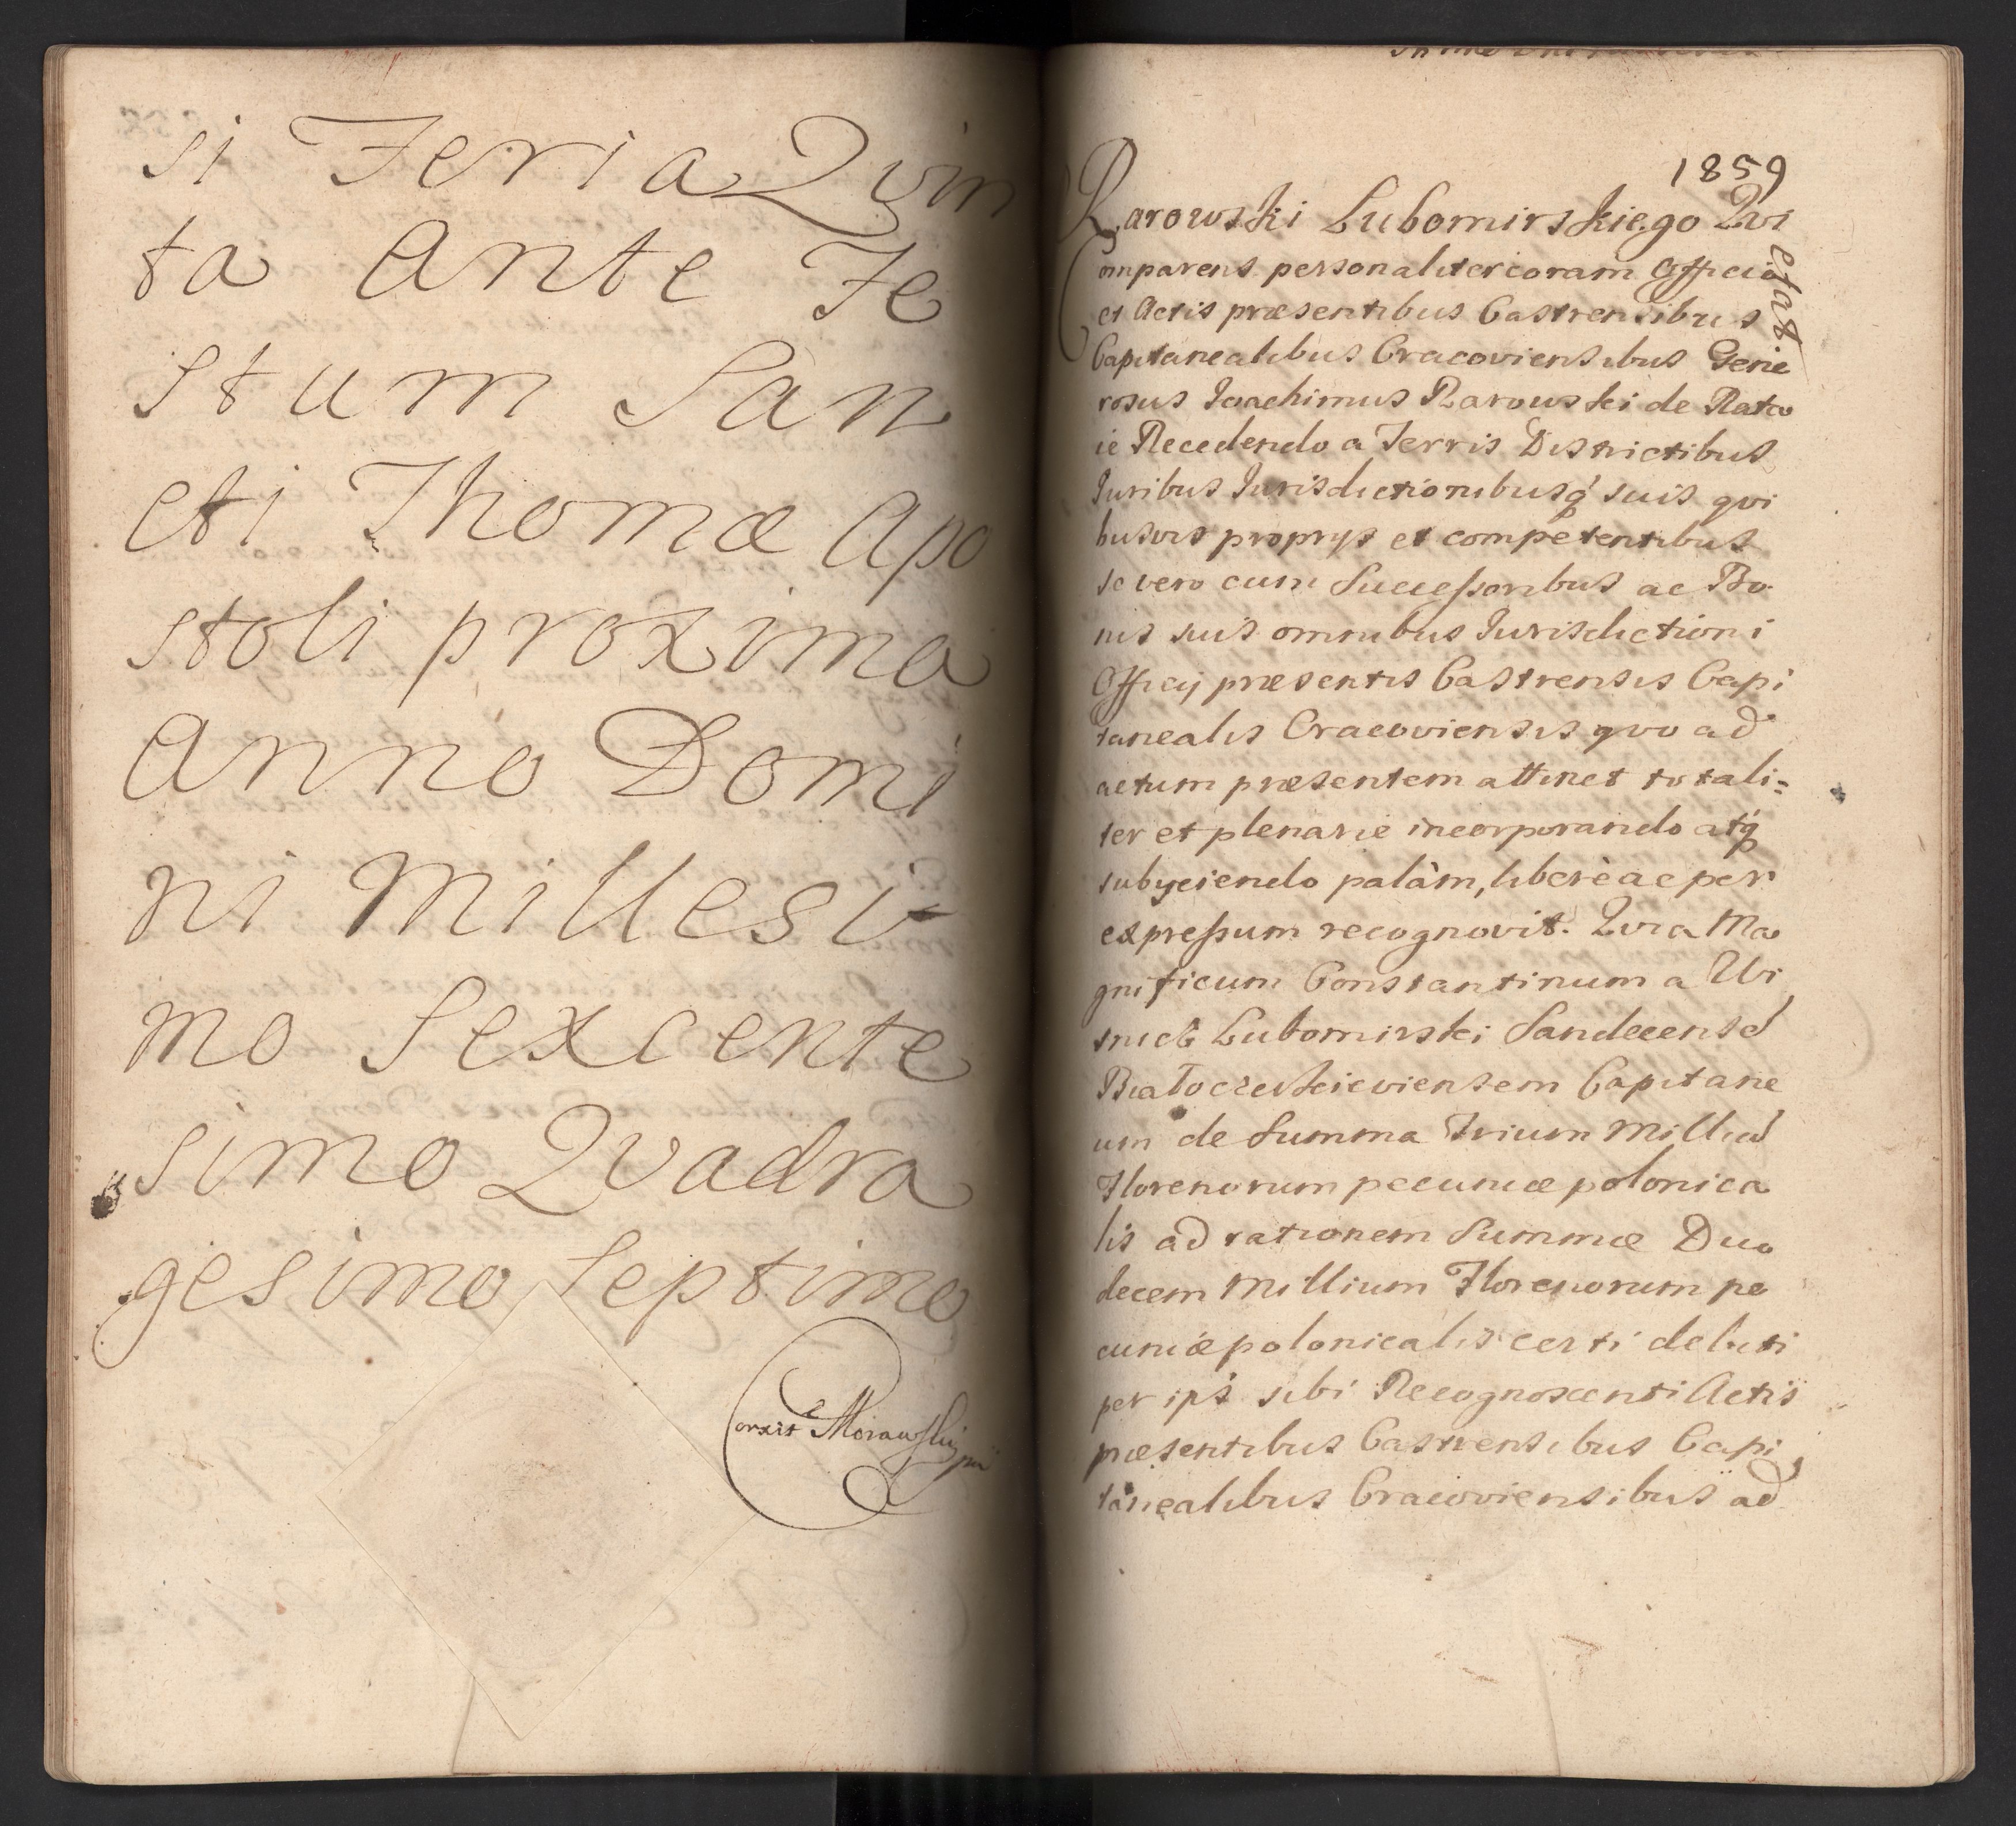 si Feria Qvin
ta Ante Fe
stum San
cti Thomæ Apo
stoli proxima
Anno Domi
ni Millesi
mo Sexcente
simo Qvadra
gesimo Septimo
Corxit Morawski
1859
Rarowski Lubomirskiego Qvi
etat
Comparens personaliter coram Officio
et Actis præsentibus Castrensibus
Capitanealibus Cracoviensibus Gene
rosus Joachimus Rarowski de Rato
ie Recedendo a Terris Districtibus
Juribus Jurisdictionibusq́ suis qvi
busvis proprys et competentibus
se vero cum Successoribus ac Bo
nis suis omnibus Jurisdictioni
Officy præsentis Castrensis Capi
tanealis Cracoviensis qvo ad
actum præsentem attinet totali=
ter et plenarie incorporando atq́
subyciendo palàm, liberè ac per
expressum recognovit. Qvia Ma
gnificum Constantinum a Wi
snicz Lubomirski Sandecens
Białocerkieviensem Capitane
um de Summa Trium Milliu
Florenorum pecuniæ polonica
lis ad rationem Summæ Duo
decem Millium Florenorum pe
cuniæ polonicalis certi debiti
per ips sibi Recognoscenti Actis
præsentibus Castrensibus Capi
tanealibus Cracoviensibus ad